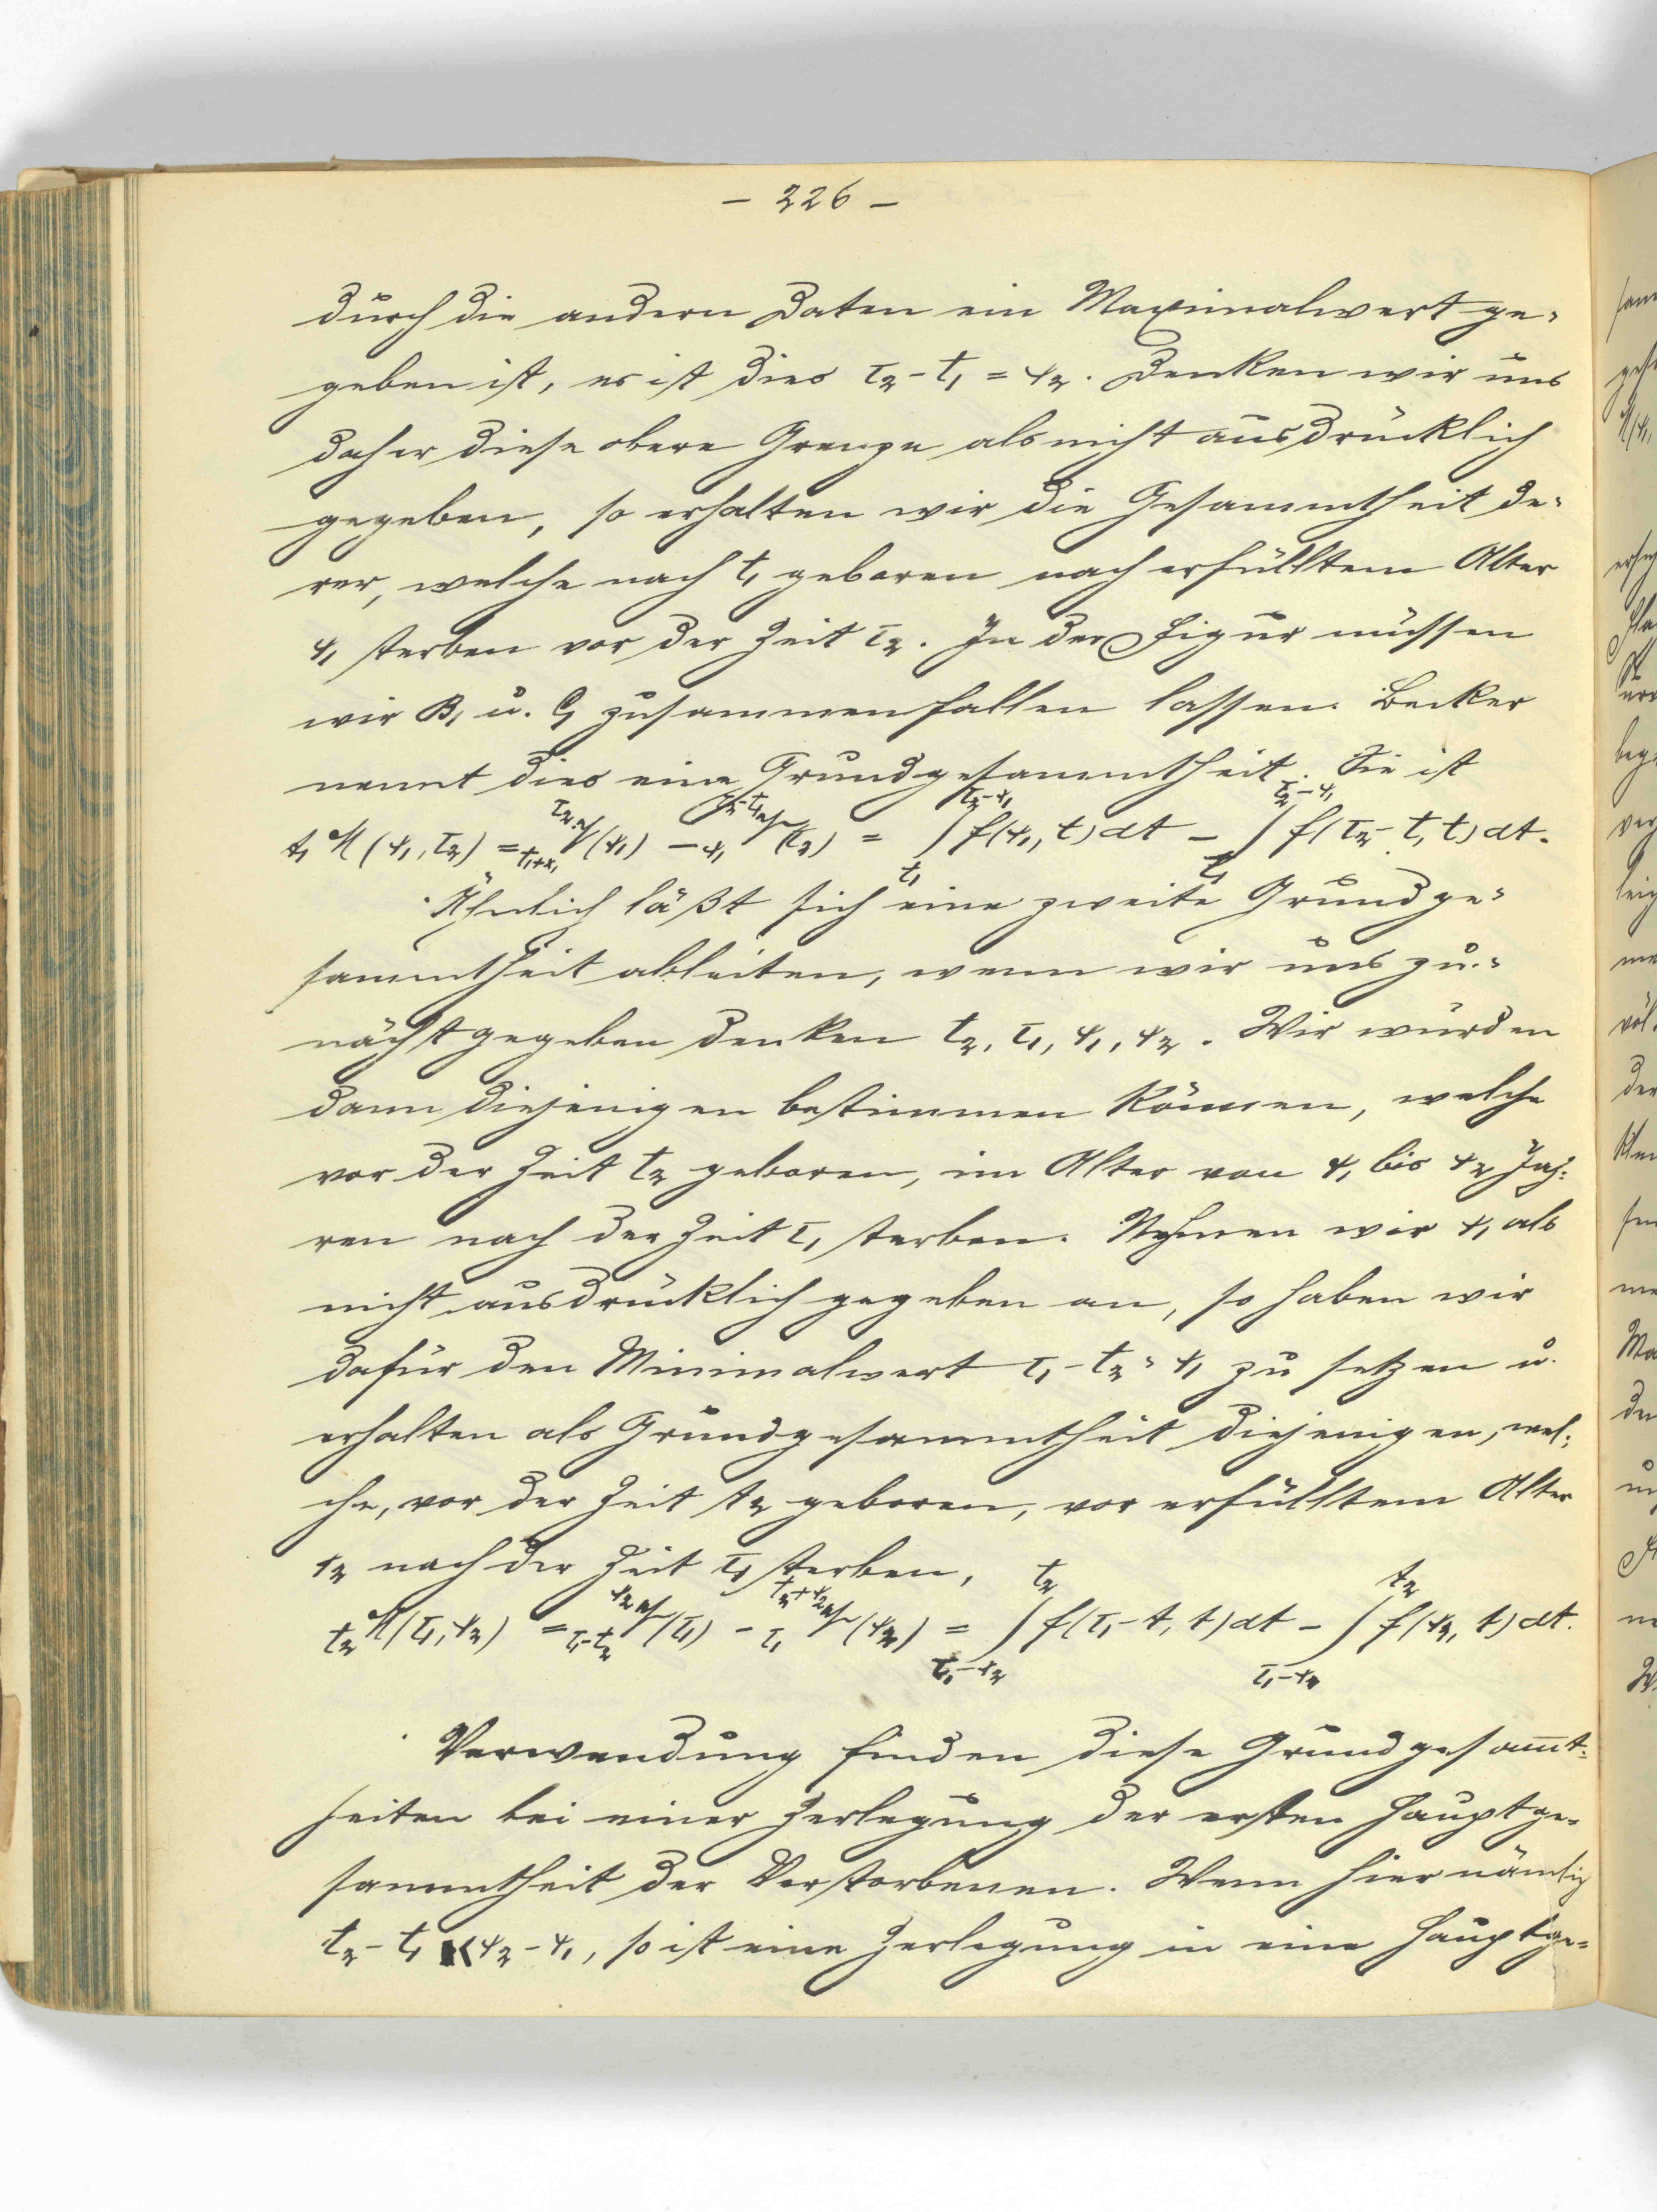 – 226 –
durch die andern Daten ein Maximalwert ge-
geben ist, es ist dies τ₂ - t₁ = x₂. Denken wir uns
daher diese obere Grenze als nicht ausdrücklich
gegeben, so erhalten wir die Gesammtheit de-
rer, welche nach t₁ geboren nach erfülltem Alter
x₁ sterben vor der Zeit τ₂. In der Figur müssen
wir B₁ u. C₁ zusammenfallen lassen. Becker
nennt dies eine Grundgesammtheit. Sie ist
t₁ M (x₁, τ₂) = (x₁) - (τ₂) = ∫ f(x₁, t) dt - ∫ f(τ₂ - t, t) dt.
Ähnlich läßt sich eine zweite Grundge-
sammtheit ableiten, wenn wir uns zu-
nächst gegeben denken t₂, τ₁, x₁, x₂. Wir würden
dann diejenigen bestimmen können, welche
vor der Zeit t₂ geboren, im Alter von x₁ bis x₂ Jah-
ren nach der Zeit τ₁ sterben. Nehmen wir x₁ als
nicht ausdrücklich gegeben an, so haben wir
dafür den Minimalwert τ₁ - t₂ = x₁ zu setzen u.
erhalten als Grundgesammtheit diejenigen, wel-
che, vor der Zeit t₂ geboren, vor erfülltem Alter
x₂ nach der Zeit τ₁ sterben,
t₂ M (τ₁, x₂) = (τ₁) - (x₂) = ∫ f(τ₁ - t, t) dt - ∫ f(x₂, t) dt.
Verwendung finden diese Grundgesammt-
heiten bei einer Zerlegung der ersten Hauptge-
sammtheit der Verstorbenen. Wenn hier nämlich
t₂ - t₁ < x₂ - x₁, so ist eine Zerlegung in eine Hauptge-